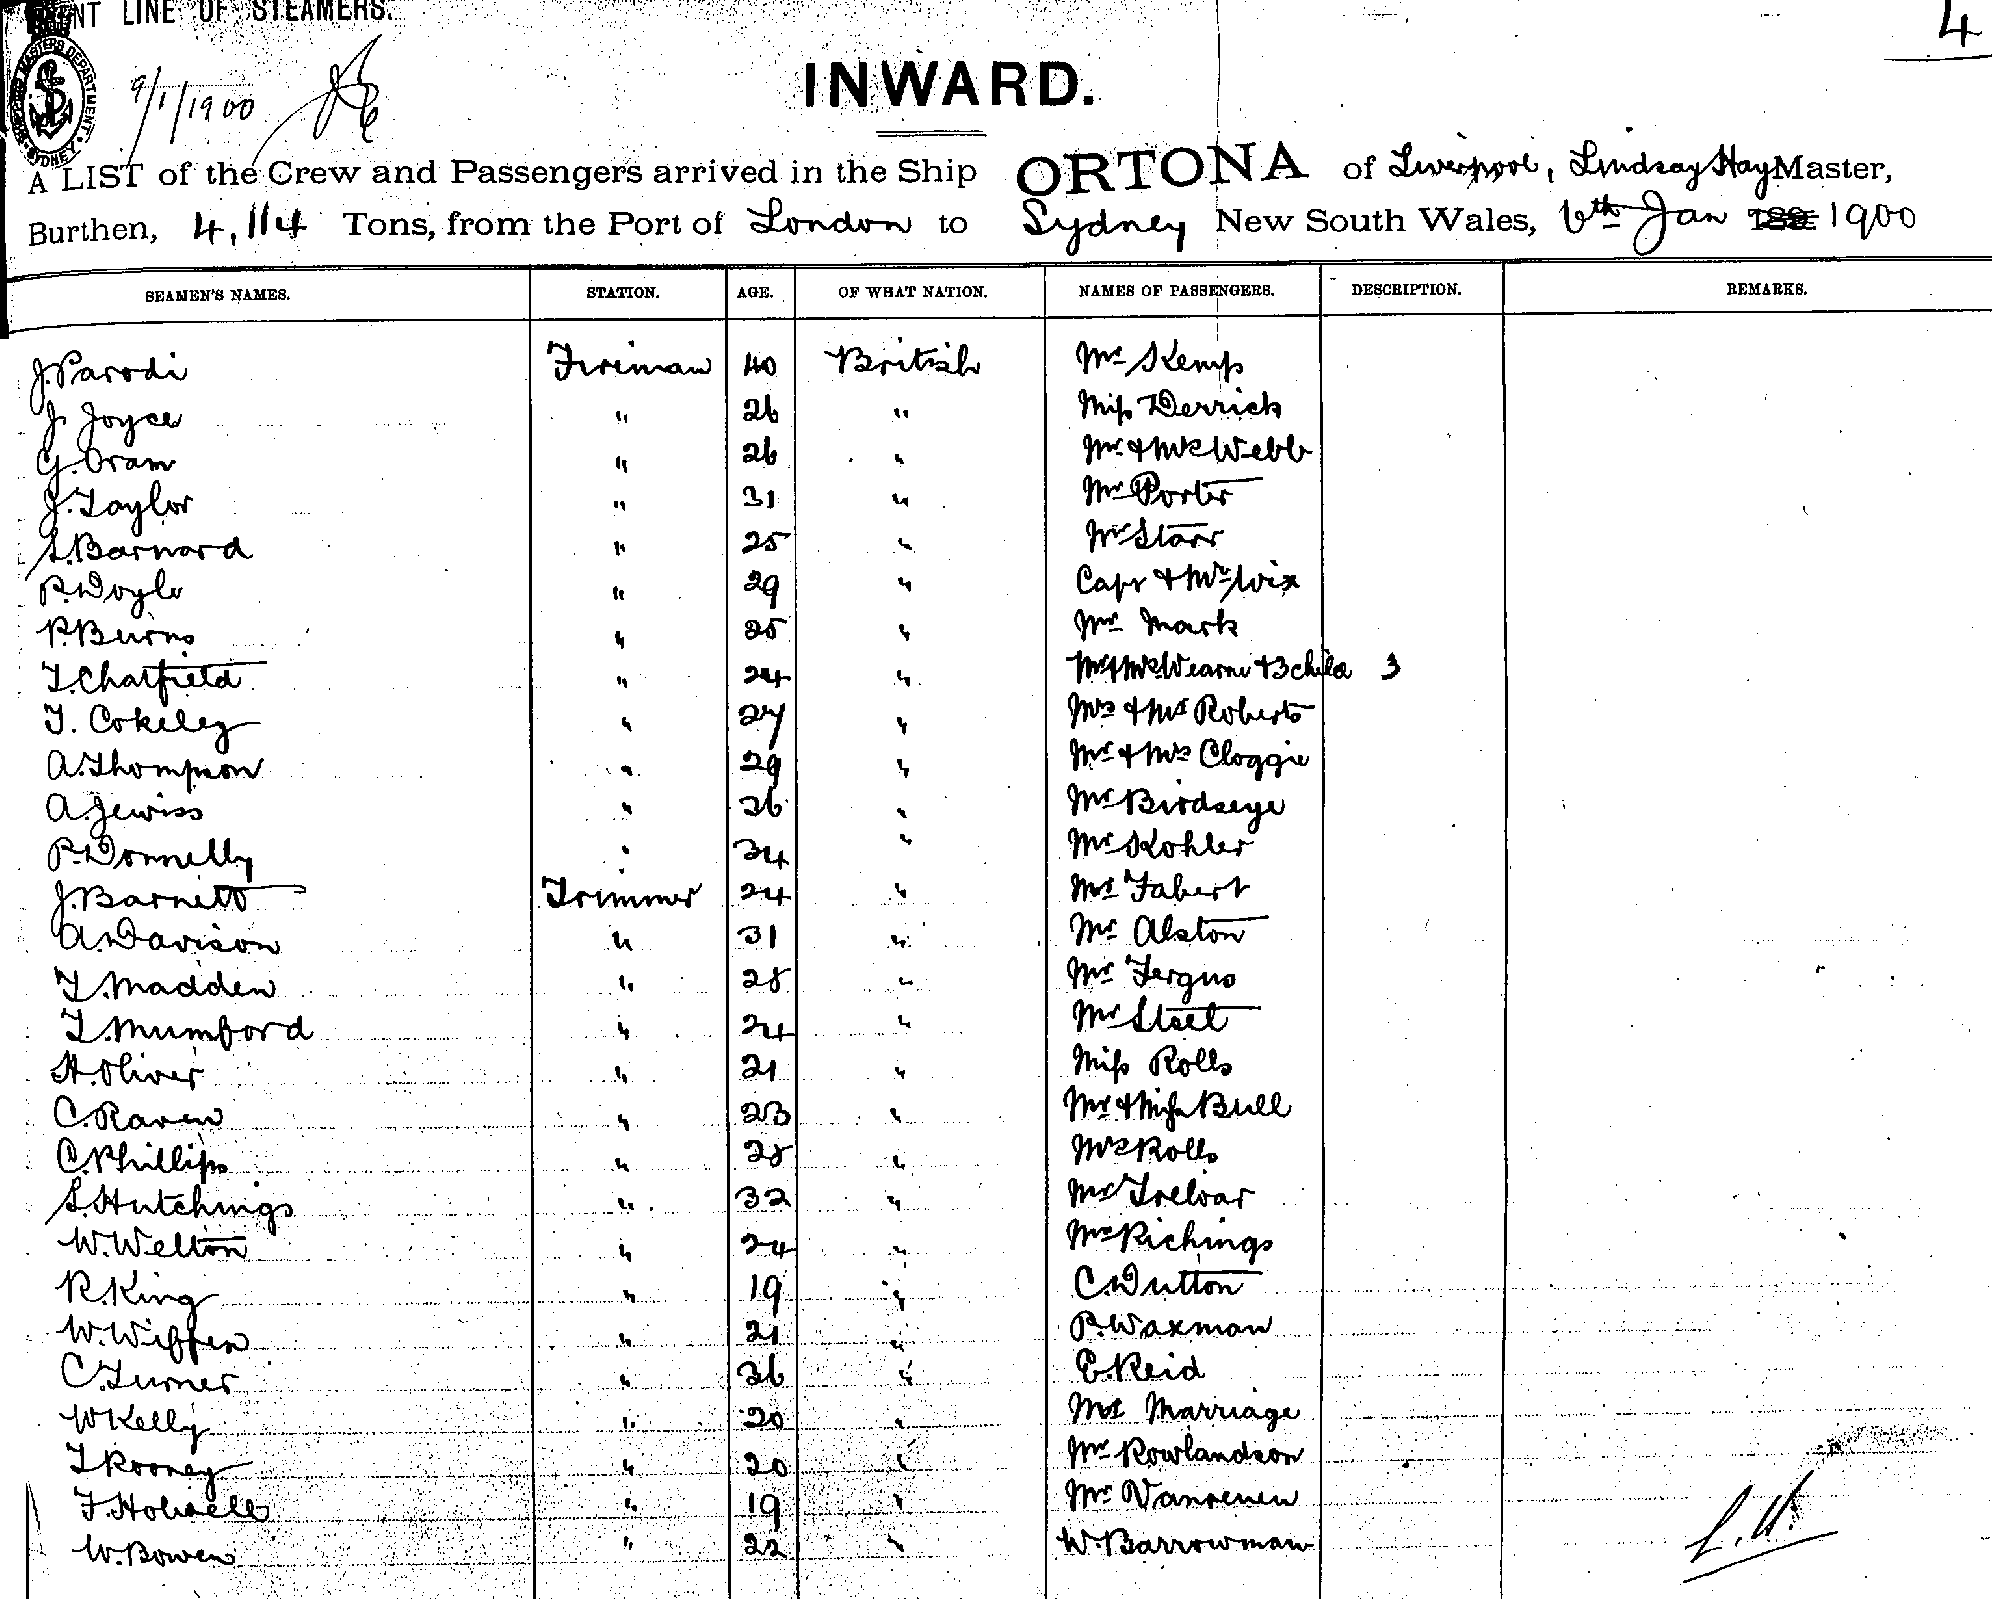 ENT LINE OF STEAMERS.
4
MASTERS DEPARTMENT. SYDNEY
9/1/1900
INWARD.
A LIST of the Crew and Passengers arrived in the Ship ORTONA of Liverpool, Lindsay Hay Master,
Burthen, 4,114 Tons, from the Port of London to Sydney New South Wales, 6th Jan 1900
SEAMEN'S NAMES. STATION. AGE. OF WHAT NATION. NAMES OF PASSENGERS. DESCRIPTION. REMARKS.
J. Parodi Fireman 40 British Mr Kemp
J. Joyce " 26 " Miss Derrick
G. Oram " 26 " Mr & Mrs Webb
J. Taylor " 31 " Mr Porter
S. Barnard " 25 " Mr Starr
P. Doyle " 29 " Capt & Mrs Wix
P. Burns " 25 " Mr Mark
T. Chatfield " 24 " Mr & Mrs Wearne & 3 child 3
T. Cokeley " 27 " Mrs & Mr Roberts
A. Thompson " 29 " Mr & Mrs Cloggie
A. Jewiss " 26 " Mr Birdseye
P. Donnelly " 34 " Mr Kohler
J. Barnett Trimmer 24 " Mr Fabert
A. Davison " 31 " Mr Alston
T. Madden " 28 " Mr Fergus
T. Mumford " 24 " Mr Steet
H. Oliver " 21 " Miss Rolls
C. Raven " 23 " Mr & Miss Bull
C. Phillips " 28 " Mrs Rolls
S. Hutchings " 32 " Mr Treloar
W. Welton " 24 " Mr Richings
R. King " 19 " C. Dutton
W. Wiffen " 21 " P. Waxman
C. Turner " 26 " E. Reid
W Kelly " 20 " Mr Marriage
T Rooney " 20 " Mr Rowlandson
F. Holwell " 19 " Mr Vanrenen
W. Bowen " 22 " W. Barrowman
L.H.